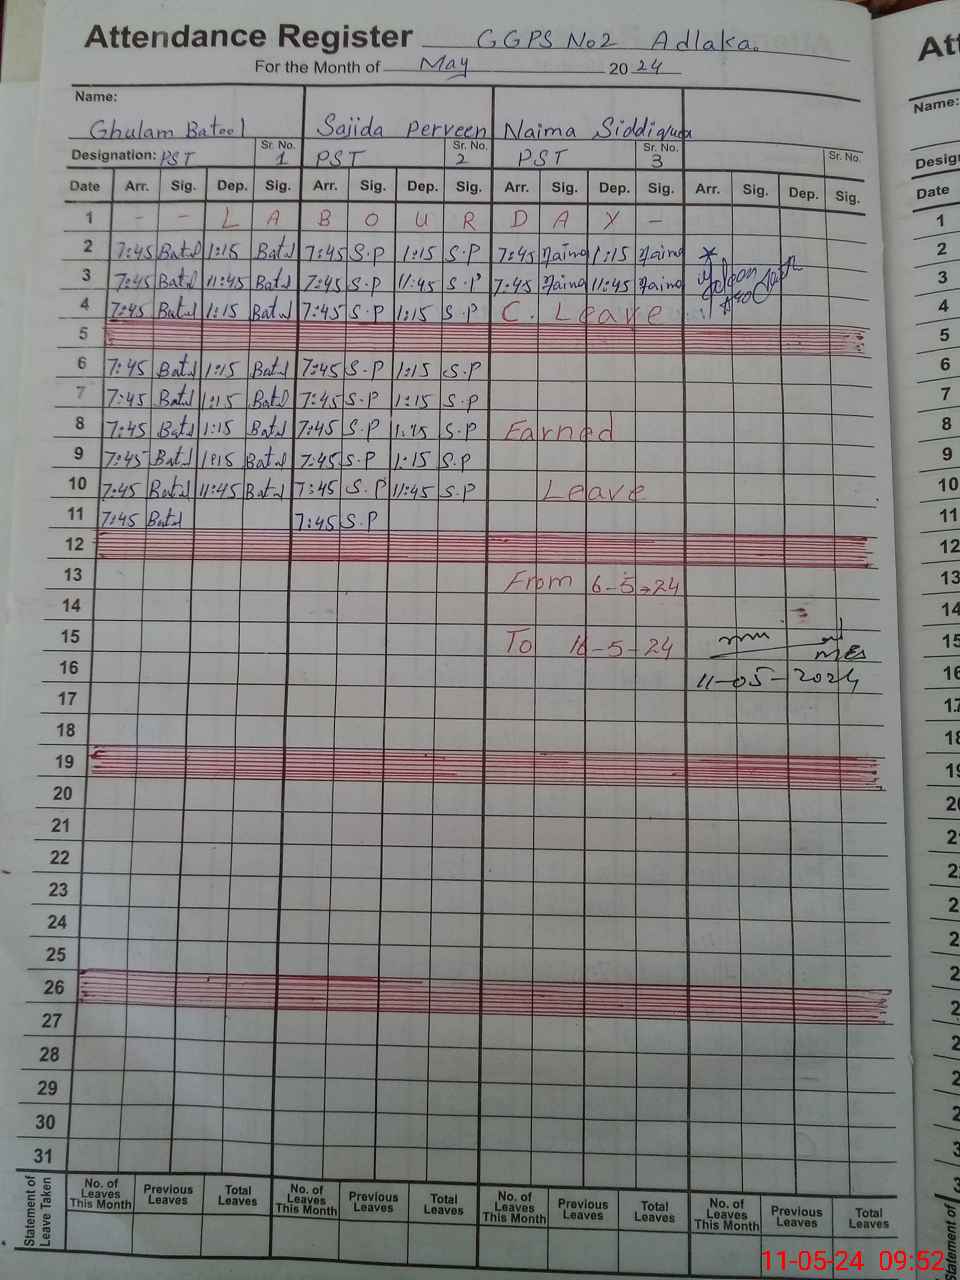 Attendance Register GGPS No2 Adlaka.
For the Month of May 2024
Name:
Ghulam Batool Sajida Perveen Naima Siddiqua
Designation: PST Sr. No. 1 PST Sr. No. 2 PST Sr. No. 3 Sr. No.
Date Arr. Sig. Dep. Sig. Arr. Sig. Dep. Sig. Arr. Sig. Dep. Sig. Arr. Sig. Dep. Sig.
1 - - L A B O U R D A Y -
2 7:45 Batul 1:15 Batul 7:45 S.P 1:15 S.P 7:45 Naima 1:15 Naima
3 7:45 Batul 11:45 Batul 7:45 S.P 11:45 S.P 7:45 Naima 11:45 Naima
4 7:45 Batul 1:15 Batul 7:45 S.P 1:15 S.P C. Leave
5
6 7:45 Batul 1:15 Batul 7:45 S.P 1:15 S.P
7 7:45 Batul 1:15 Batul 7:45 S.P 1:15 S.P
8 7:45 Batul 1:15 Batul 7:45 S.P 1:15 S.P Earned
9 7:45 Batul 1:15 Batul 7:45 S.P 1:15 S.P
10 7:45 Batul 11:45 Batul 7:45 S.P 11:45 S.P Leave
11 7:45 Batul 7:45 S.P
12
13 From 6-5-24
14
15 To 16-5-24
16 11-05-2024
17
18
19
20
21
22
23
24
25
26
27
28
29
30
31
Statement of Leave Taken
No. of Leaves This Month Previous Leaves Total Leaves No. of Leaves This Month Previous Leaves Total Leaves No. of Leaves This Month Previous Leaves Total Leaves No. of Leaves This Month Previous Leaves Total Leaves
11-05-24 09:52
Name:
Date
1
2
3
4
5
6
7
8
9
10
11
12
13
14
15
16